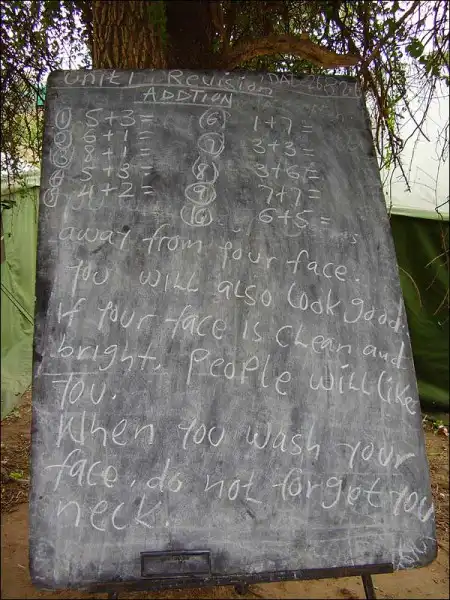 Unit 1 Revision
ADDTION
① 5+3= ⑥ 1+7=
② 6+1= ⑦ 3+3=
③ 8+1= ⑧ 3+6=
④ 5+3= ⑨ 7+7=
⑤ 4+2= ⑩ 6+5=
away from your face.
You will also look good.
if your face is clean and
bright. People will like
You.
When you wash your
face, do not forget you
neck.